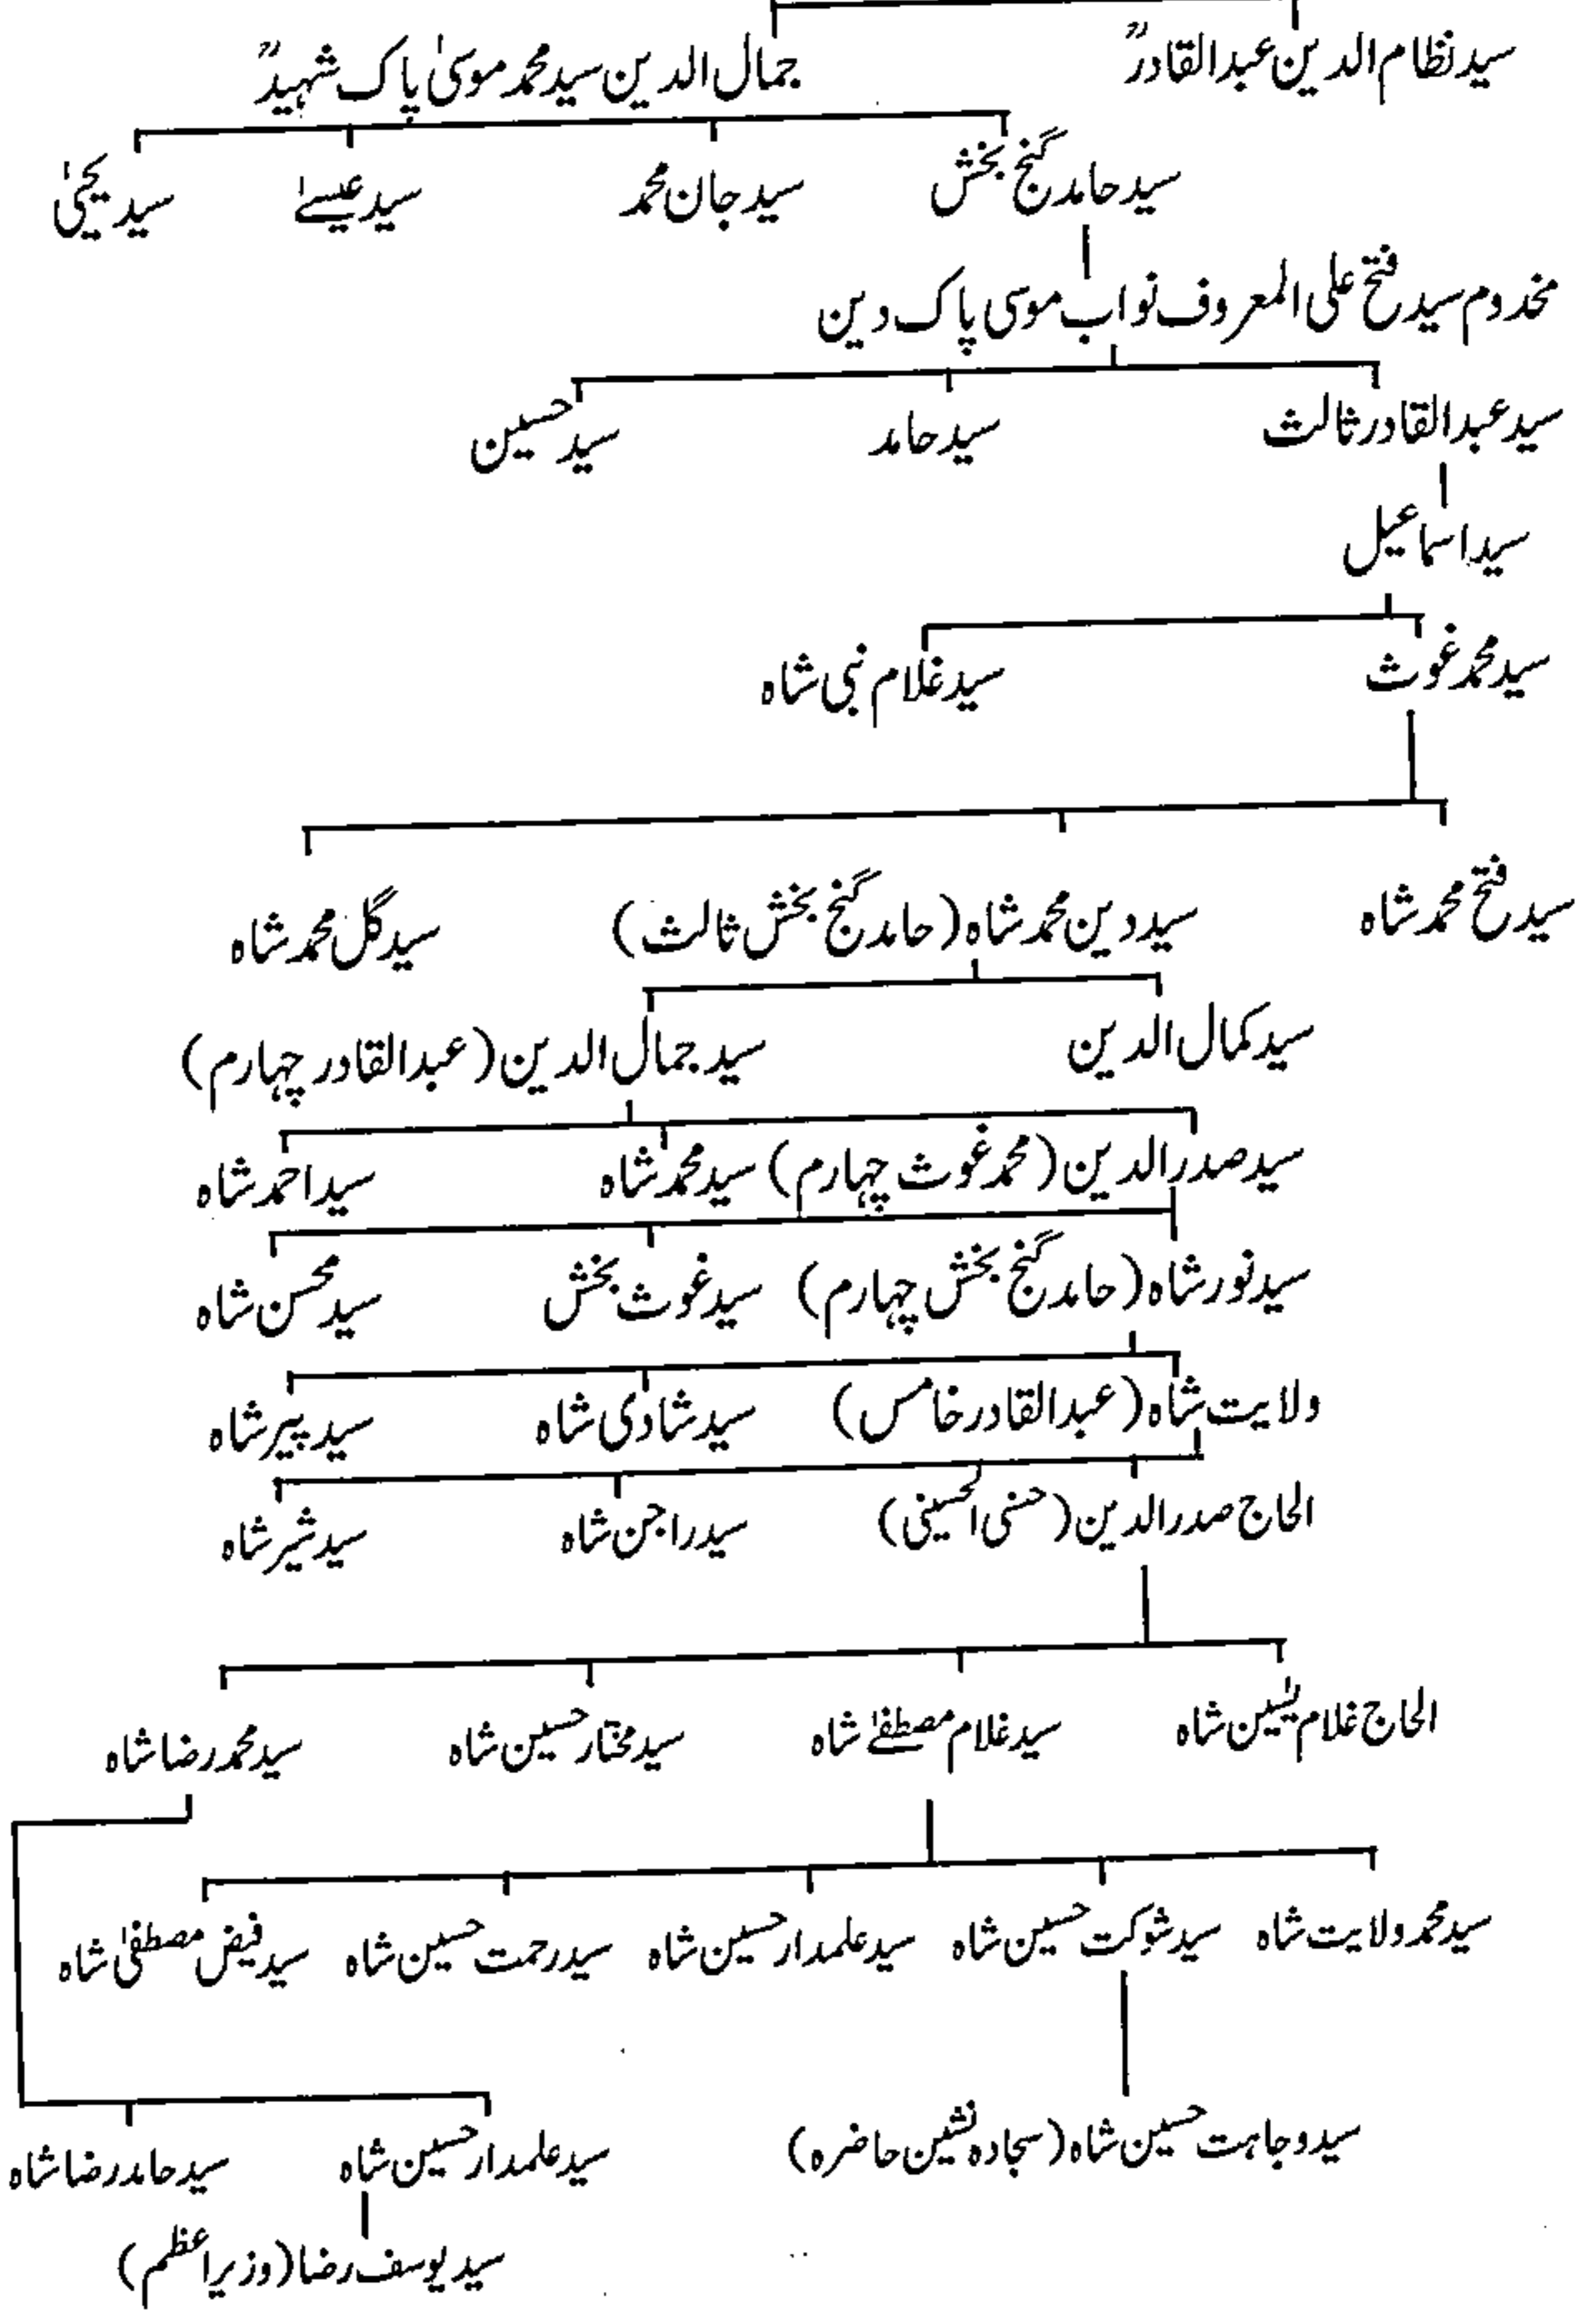 سید نظام الدین عبدالقادرؒ جمال الدین سید محمد موسیٰ پاک شہیدؒ
سید حامد گنج بخش سید جان محمد سید عیسےٰ سید یحییٰ
مخدوم سید فتح علی المعروف نواب موسی پاک دین
سید عبدالقادر ثالث سید حامد سید حسین
سید اسماعیل
سید محمد غوث سید غلام نبی شاہ
سید فتح محمد شاہ سید دین محمد شاہ (حامد گنج بخش ثالث) سید گل محمد شاہ
سید کمال الدین سید جمال الدین (عبدالقادر چہارم)
سید صدر الدین (محمد غوث چہارم) سید محمد شاہ سید احمد شاہ
سید نور شاہ (حامد گنج بخش چہارم) سید غوث بخش سید محسن شاہ
ولایت شاہ (عبدالقادر خامس) سید شادی شاہ سید پیر شاہ
الحاج صدر الدین (حسنی الحسینی) سید راجن شاہ سید شیر شاہ
الحاج غلام یٰسین شاہ سید غلام مصطفےٰ شاہ سید مختار حسین شاہ سید محمد رضا شاہ
سید محمد ولایت شاہ سید شوکت حسین شاہ سید علمدار حسین شاہ سید رحمت حسین شاہ سید فیض مصطفیٰ شاہ
سید وجاہت حسین شاہ (سجادہ نشین حاضرہ) سید علمدار حسین شاہ سید حامد رضا شاہ
سید یوسف رضا (وزیر اعظم)